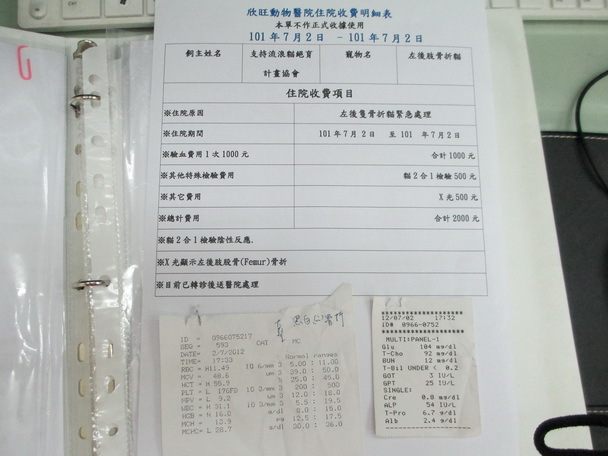 欣旺動物醫院住院收費明細表
本單不作正式收據使用
101 年 7 月 2 日 - 101 年 7 月 2 日
飼主姓名 支持流浪貓絕育計畫協會 寵物名 左後肢骨折貓
住院收費項目
※住院原因 左後隻骨折貓緊急處理
※住院期間 101 年 7 月 2 日 至 101 年 7 月 2 日
※驗血費用 1 次 1000 元 合計 1000 元
※其他特殊檢驗費用 貓 2 合 1 檢驗 500 元
※其它費用 X 光 500 元
※總計費用 合計 2000 元
※貓 2 合 1 檢驗陰性反應.
※X 光顯示左後肢股骨(Femur)骨折
※目前已轉診後送醫院處理
ID = 0966075217
SEQ = 593 CAT MC
DATE= 2/7/2012
TIME= 17:33 Normal ranges
RBC = H11.49 10 6/mm 3 5.00 : 11.00
MCV = 48.6 um 3 39.0 : 50.0
HCT = H 55.9 % 25.0 : 45.0
PLT = L 176FD 10 3/mm 3 200 : 500
MPV = L 9.2 um 3 12.0 : 18.0
WBC = H 31.1 10 3/mm 3 5.5 : 19.5
HGB = H 16.0 g/dl 8.0 : 15.0
MCH = 13.9 pg 12.5 : 17.5
MCHC= L 28.7 g/dl 30.0 : 36.0
12/07/02 17:32
ID# 0966-0752
MULTI:PANEL-1
Glu 104 mg/dl
T-Cho 92 mg/dl
BUN 12 mg/dl
T-Bil UNDER < 0.2
GOT 3 IU/L
GPT 25 IU/L
SINGLE:
Cre 0.8 mg/dl
ALP 54 IU/L
T-Pro 6.7 g/dl
Alb 2.4 g/dl